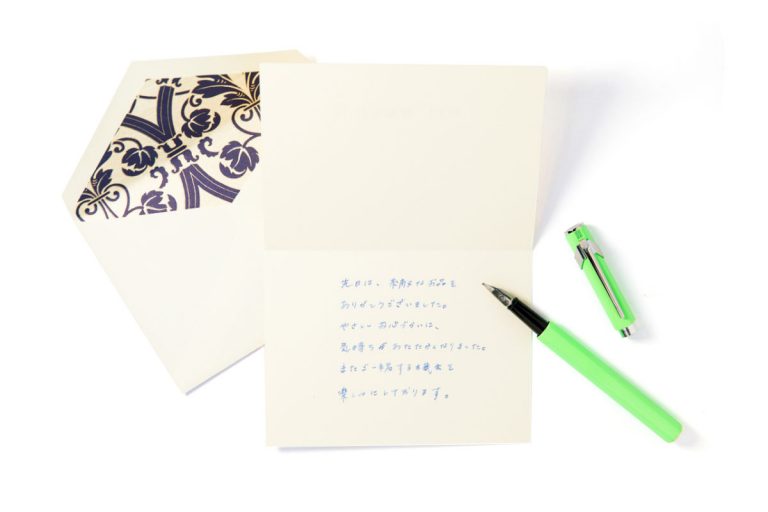 先日は、素敵なお品を
ありがとうございました。
やさしいお心づかいに、
気持ちがあたたかくなりました。
またご一緒する機会を
楽しみにしております。